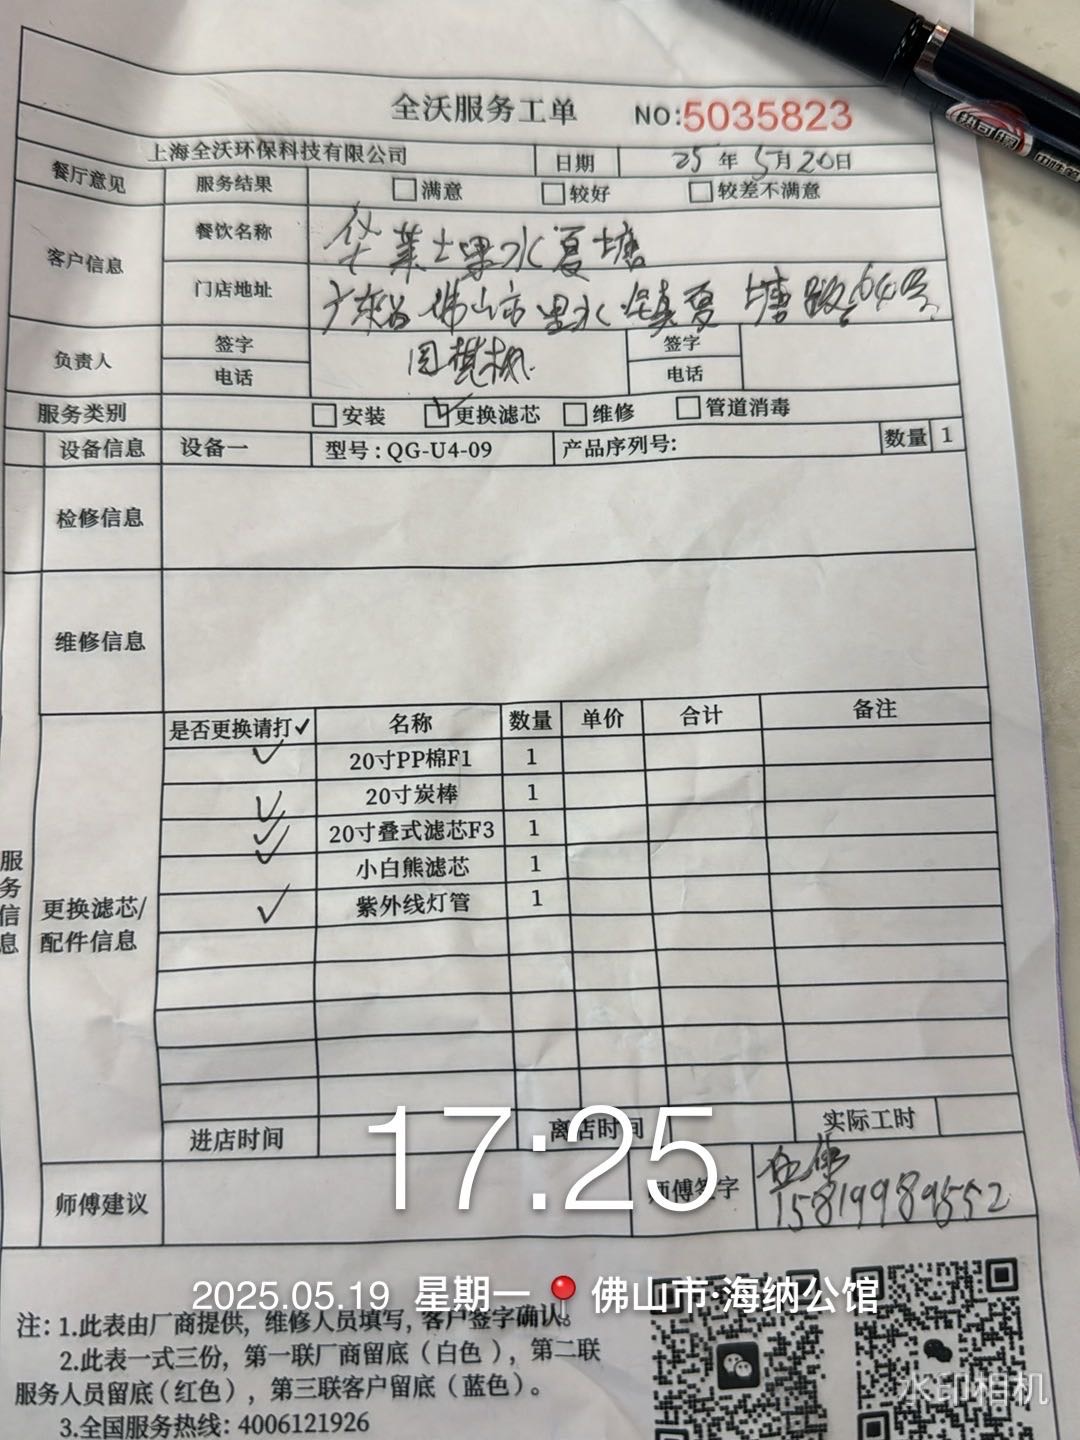 全沃服务工单 NO:5035823
上海全沃环保科技有限公司 日期 25年5月20日
餐厅意见 服务结果 满意 较好 较差不满意
客户信息 餐饮名称 华莱士里水夏塘
门店地址 广东省佛山市里水镇夏塘路64号
负责人 签字 签字
电话 电话
服务类别 安装 ✓更换滤芯 维修 管道消毒
设备信息 设备一 型号:QG-U4-09 产品序列号: 数量 1
检修信息
维修信息
是否更换请打✓ 名称 数量 单价 合计 备注
✓ 20寸PP棉F1 1
✓ 20寸炭棒 1
✓ 20寸叠式滤芯F3 1
✓ 小白熊滤芯 1
✓ 紫外线灯管 1
服务信息
更换滤芯/
配件信息
进店时间 离店时间 实际工时
17:25
师傅建议 师傅签字 15819989552
2025.05.19 星期一 佛山市·海纳公馆
注:1.此表由厂商提供,维修人员填写,客户签字确认。
2.此表一式三份,第一联厂商留底(白色),第二联
服务人员留底(红色),第三联客户留底(蓝色)。
3.全国服务热线:4006121926
水印相机